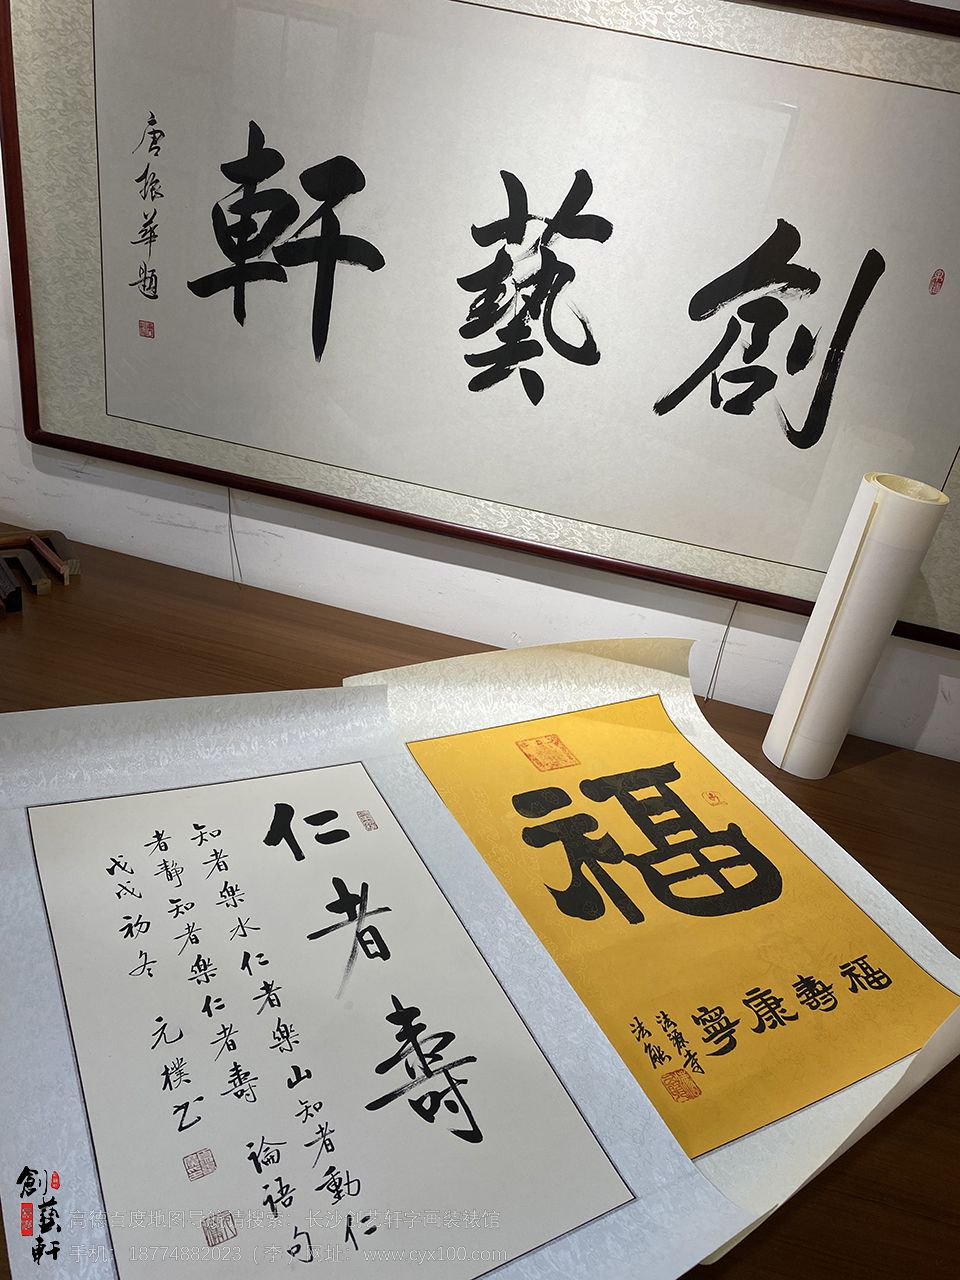 創藝軒
唐振華題
仁者壽
知者樂水仁者樂山知者動仁
者靜知者樂仁者壽 論語句
戊戌初冬 元樸书
福
福壽康寧
法源寺
法能
創藝軒
高德百度地图导航请搜索：长沙创艺轩字画装裱馆
手机：18774882023（李）网址：www.cyx100.com